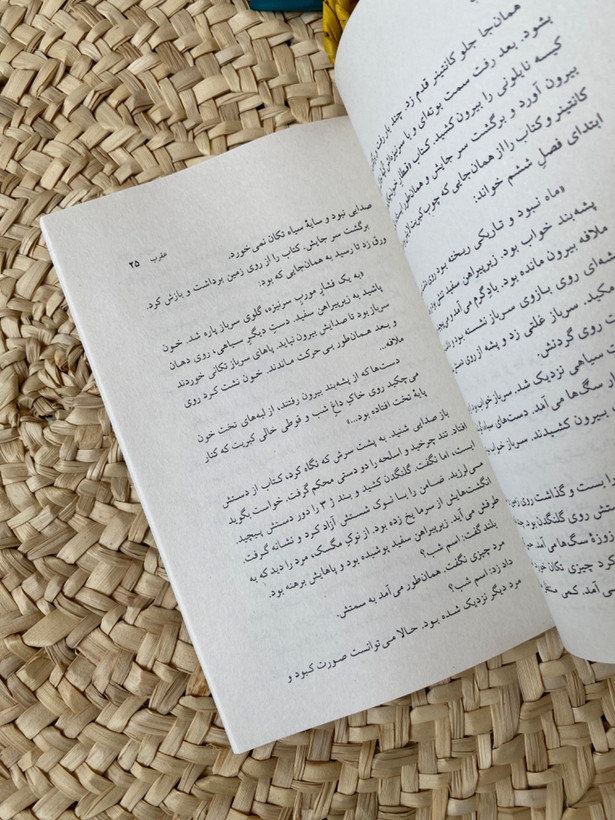 همان‌جا جلو کانتینر قدم زد. چند بار رفت و
بشود. بعد رفت سمت بوته‌ای و با سرنیزه
کیسه نایلونی را بیرون کشید. کتاب
بیرون آورد و برگشت سر جایش و همان‌طور
کانتینر و کتاب را از همان‌جایی که چوب کبریت
ابتدای فصلِ ششم خواند:
«ماه نبود و تاریکی ریخته بود روی
پشه‌بند خواب بود. زیرپیراهن سفید
ملافه بیرون مانده بود. باد گرم می‌آمد
پشه‌ای روی بازوی سرباز نشسته بود و
می‌مکید. سرباز غلتی زد و پشه از روی
دست روی گردنش.
سیاهی نزدیک شد. سرباز خواب
سگ‌ها می‌آمد. دست‌های
بیرون کشیدند. سرباز
را بست و گذاشت روی
دستش روی گلنگدن بود
زوزهٔ سگ‌ها می‌آمد
کرد چیزی تکان
می‌آمد. کمی
عقرب ۲۵
صدایی نبود و سایهٔ سیاه تکان نمی‌خورد.
برگشت سر جایش. کتاب را از روی زمین برداشت و بازش کرد.
ورق زد تا رسید به همان‌جایی که بود:
«به یک فشار مورب سرنیزه، گلوی سرباز پاره شد. خون
پاشید به زیرپیراهن سفید. دستِ دیگرِ سیاهی، روی دهان
سرباز بود تا صدایش بیرون نیاید. پاهای سرباز تکانی خوردند
و بعد همان‌طور بی‌حرکت ماندند. خون نشت کرد روی
ملافه...
دست‌ها که از پشه‌بند بیرون رفتند، از لبه‌های تخت خون
می‌چکید روی خاکِ داغِ شب و قوطی خالی کبریت که کنار
پایهٔ تخت افتاده بود...»
باز صدایی شنید. به پشت سرش که نگاه کرد، کتاب از دستش
افتاد. تند چرخید و اسلحه را دو دستی محکم گرفت. خواست بگوید
ایست، اما نگفت. گلنگدن کشید و بند ژ ۳ را دور دستش پیچید.
می‌لرزید. ضامن را با نوک شستش آزاد کرد و نشانه گرفت.
انگشت‌هایش از سرما یخ زده بود. از نوکِ مگسک، مرد را دید که به
طرفش می‌آید. زیرپیراهن سفید پوشیده بود و پاهایش برهنه بود.
بلند گفت: اسم شب؟
مرد چیزی نگفت. همان‌طور می‌آمد به سمتش.
داد زد: اسم شب؟
مرد دیگر نزدیک شده بود. حالا می‌توانست صورت کبود و